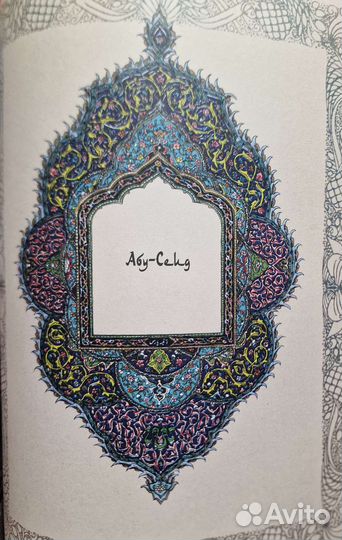 Абу-Сеид
Avito